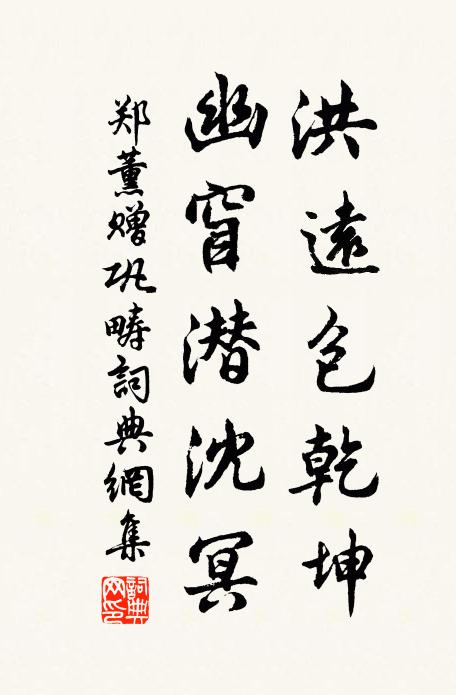 洪遠包乾坤
幽窅潜沈冥
郑薰赠巩畴詞典網集
詞典网印